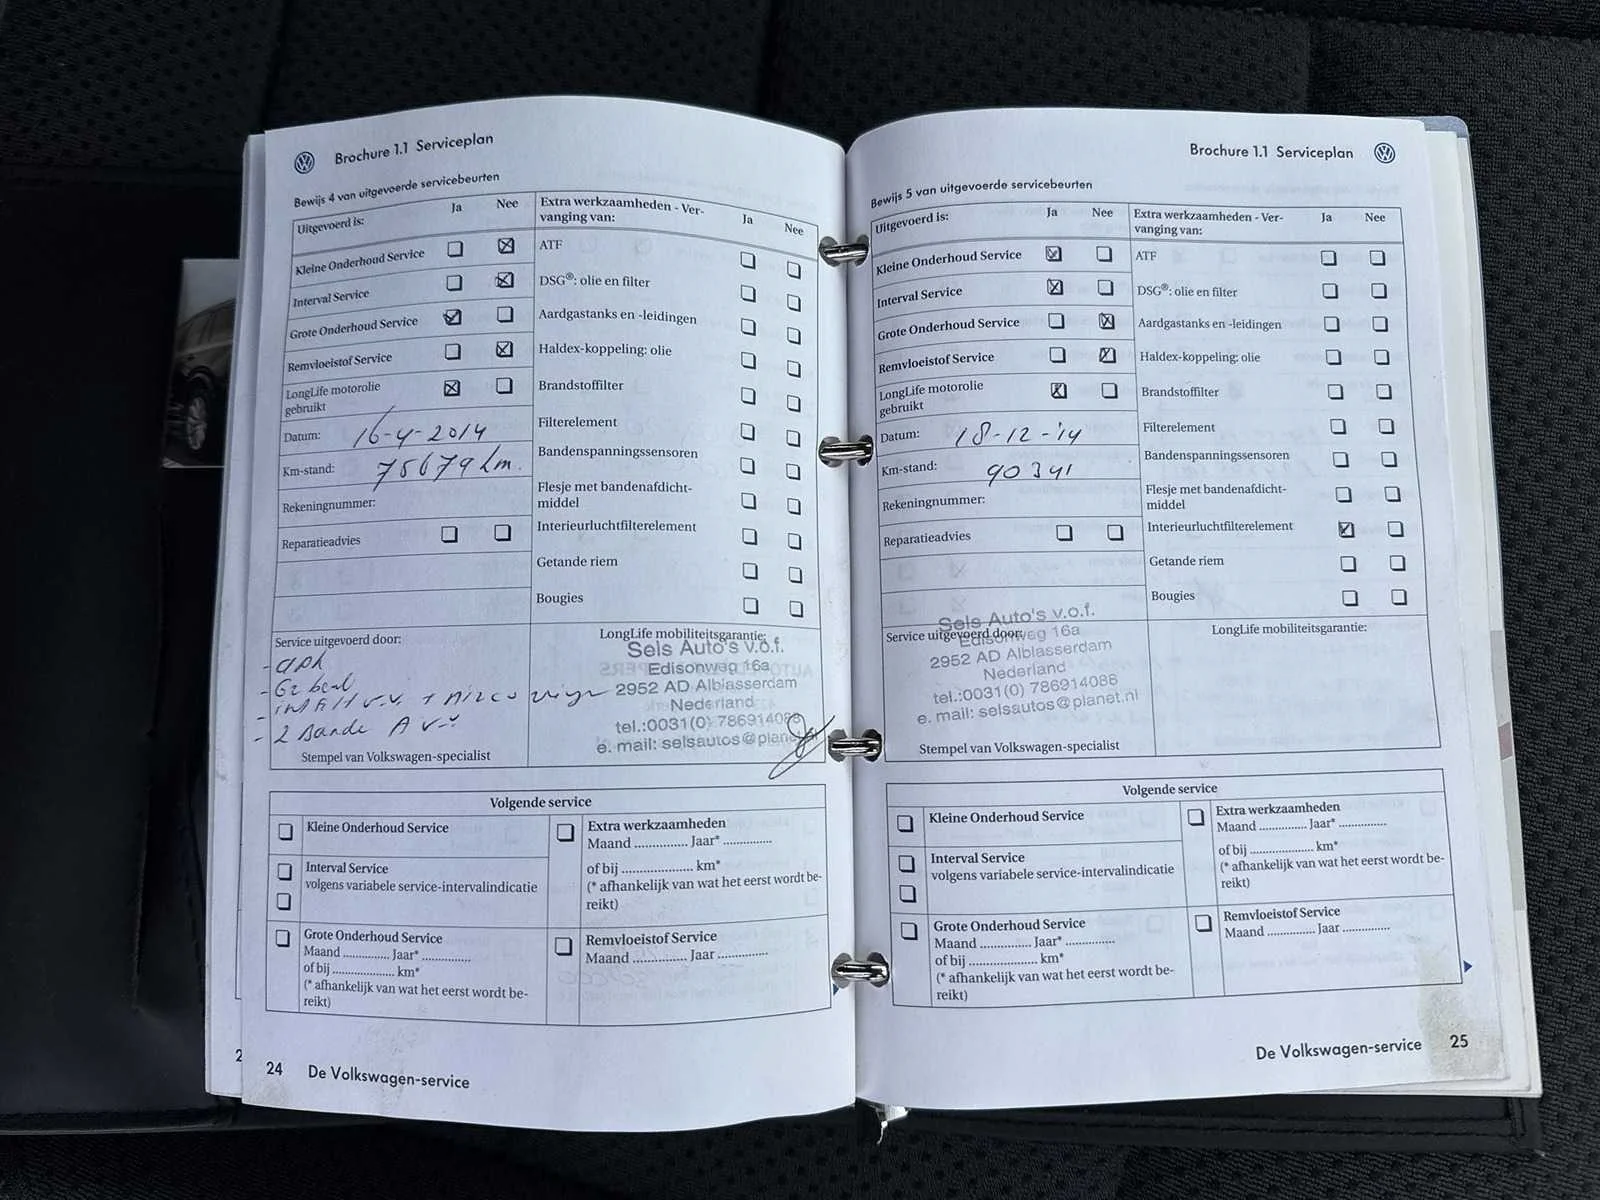 Brochure 1.1 Serviceplan
Bewijs 4 van uitgevoerde servicebeurten
Uitgevoerd is:
Ja
Nee
Kleine Onderhoud Service
Interval Service
Grote Onderhoud Service
Remvloeistof Service
LongLife motorolie
gebruikt
Datum: 16-4-2014
Km-stand: 75679 km.
Rekeningnummer:
Reparatieadvies
Extra werkzaamheden - Ver-
vanging van:
Ja
Nee
ATF
DSG®: olie en filter
Aardgastanks en -leidingen
Haldex-koppeling: olie
Brandstoffilter
Filterelement
Bandenspanningssensoren
Flesje met bandenafdicht-
middel
Interieurluchtfilterelement
Getande riem
Bougies
Service uitgevoerd door:
- APK
- 2 Bande A v.v.
Stempel van Volkswagen-specialist
LongLife mobiliteitsgarantie:
Sels Auto's v.o.f.
Edisonweg 16a
2952 AD Alblasserdam
Nederland
tel.:0031(0) 786914088
e. mail: selsautos@planet.nl
Volgende service
Kleine Onderhoud Service
Interval Service
volgens variabele service-intervalindicatie
Grote Onderhoud Service
Maand .............. Jaar* ..............
of bij .................... km*
(* afhankelijk van wat het eerst wordt be-
reikt)
Extra werkzaamheden
Maand ............... Jaar* ...............
of bij ...................... km*
(* afhankelijk van wat het eerst wordt be-
reikt)
Remvloeistof Service
Maand ............... Jaar ...............
2
24 De Volkswagen-service
Brochure 1.1 Serviceplan
Bewijs 5 van uitgevoerde servicebeurten
Uitgevoerd is:
Ja
Nee
Kleine Onderhoud Service
Interval Service
Grote Onderhoud Service
Remvloeistof Service
LongLife motorolie
gebruikt
Datum: 18-12-'14
Km-stand: 90341
Rekeningnummer:
Reparatieadvies
Extra werkzaamheden - Ver-
vanging van:
Ja
Nee
ATF
DSG®: olie en filter
Aardgastanks en -leidingen
Haldex-koppeling: olie
Brandstoffilter
Filterelement
Bandenspanningssensoren
Flesje met bandenafdicht-
middel
Interieurluchtfilterelement
Getande riem
Bougies
Service uitgevoerd door:
Sels Auto's v.o.f.
Edisonweg 16a
2952 AD Alblasserdam
Nederland
tel.:0031(0) 786914088
e. mail: selsautos@planet.nl
Stempel van Volkswagen-specialist
LongLife mobiliteitsgarantie:
Volgende service
Kleine Onderhoud Service
Interval Service
volgens variabele service-intervalindicatie
Grote Onderhoud Service
Maand ............... Jaar* ...............
of bij ...................... km*
(* afhankelijk van wat het eerst wordt be-
reikt)
Extra werkzaamheden
Maand .............. Jaar* ..............
of bij .................... km*
(* afhankelijk van wat het eerst wordt be-
reikt)
Remvloeistof Service
Maand .............. Jaar ..............
De Volkswagen-service 25